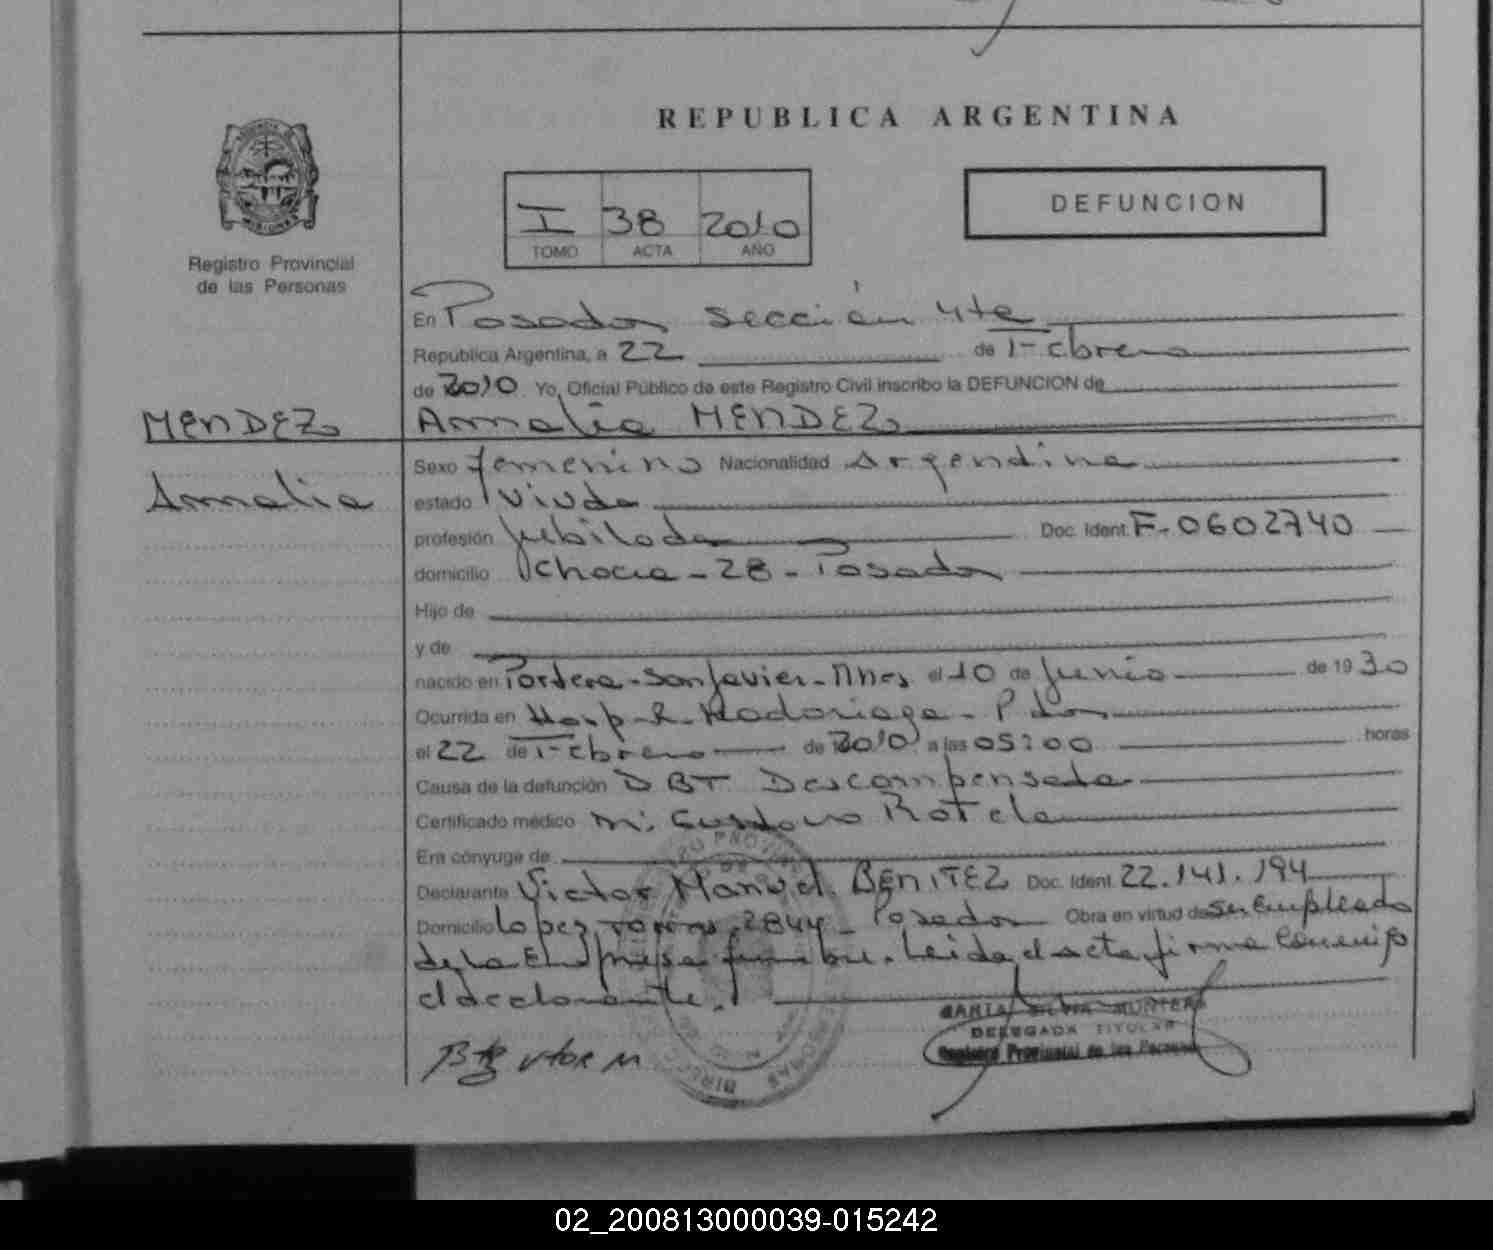 REPUBLICA ARGENTINA
I 38 2010
TOMO ACTA AÑO
DEFUNCION
Registro Provincial
de las Personas
En Posadas sección 4ta
República Argentina, a 22 de Febrero
de 2010 Yo, Oficial Público de este Registro Civil inscribo la DEFUNCION de
MENDEZ
Amalia MENDEZ
Amalia
Sexo femenino Nacionalidad Argentina
estado Viuda
profesión Jubilada Doc. Ident. F-0602740
domicilio Chacra-28-Posadas
Hijo de
y de
nacido en San Javier-Mnes el 10 de Junio de 1930
Ocurrida en Hosp. R. Madariaga - Pdas
el 22 de Febrero de 2010 a las 05:00 horas
Causa de la defunción DBT Descompensada
Certificado médico M. Gustavo Rotela
Era cónyuge de
Declarante Victor Manuel BENITEZ Doc. Ident. 22.141.194
Domicilio Lopez Torres 2844 - Posadas Obra en virtud de Ser Empleado
de la Empresa funebre. Leida el acta firma Conmigo
el declarante.
DELEGADA TITULAR
Registro Provincial de las Personas
02_200813000039-015242